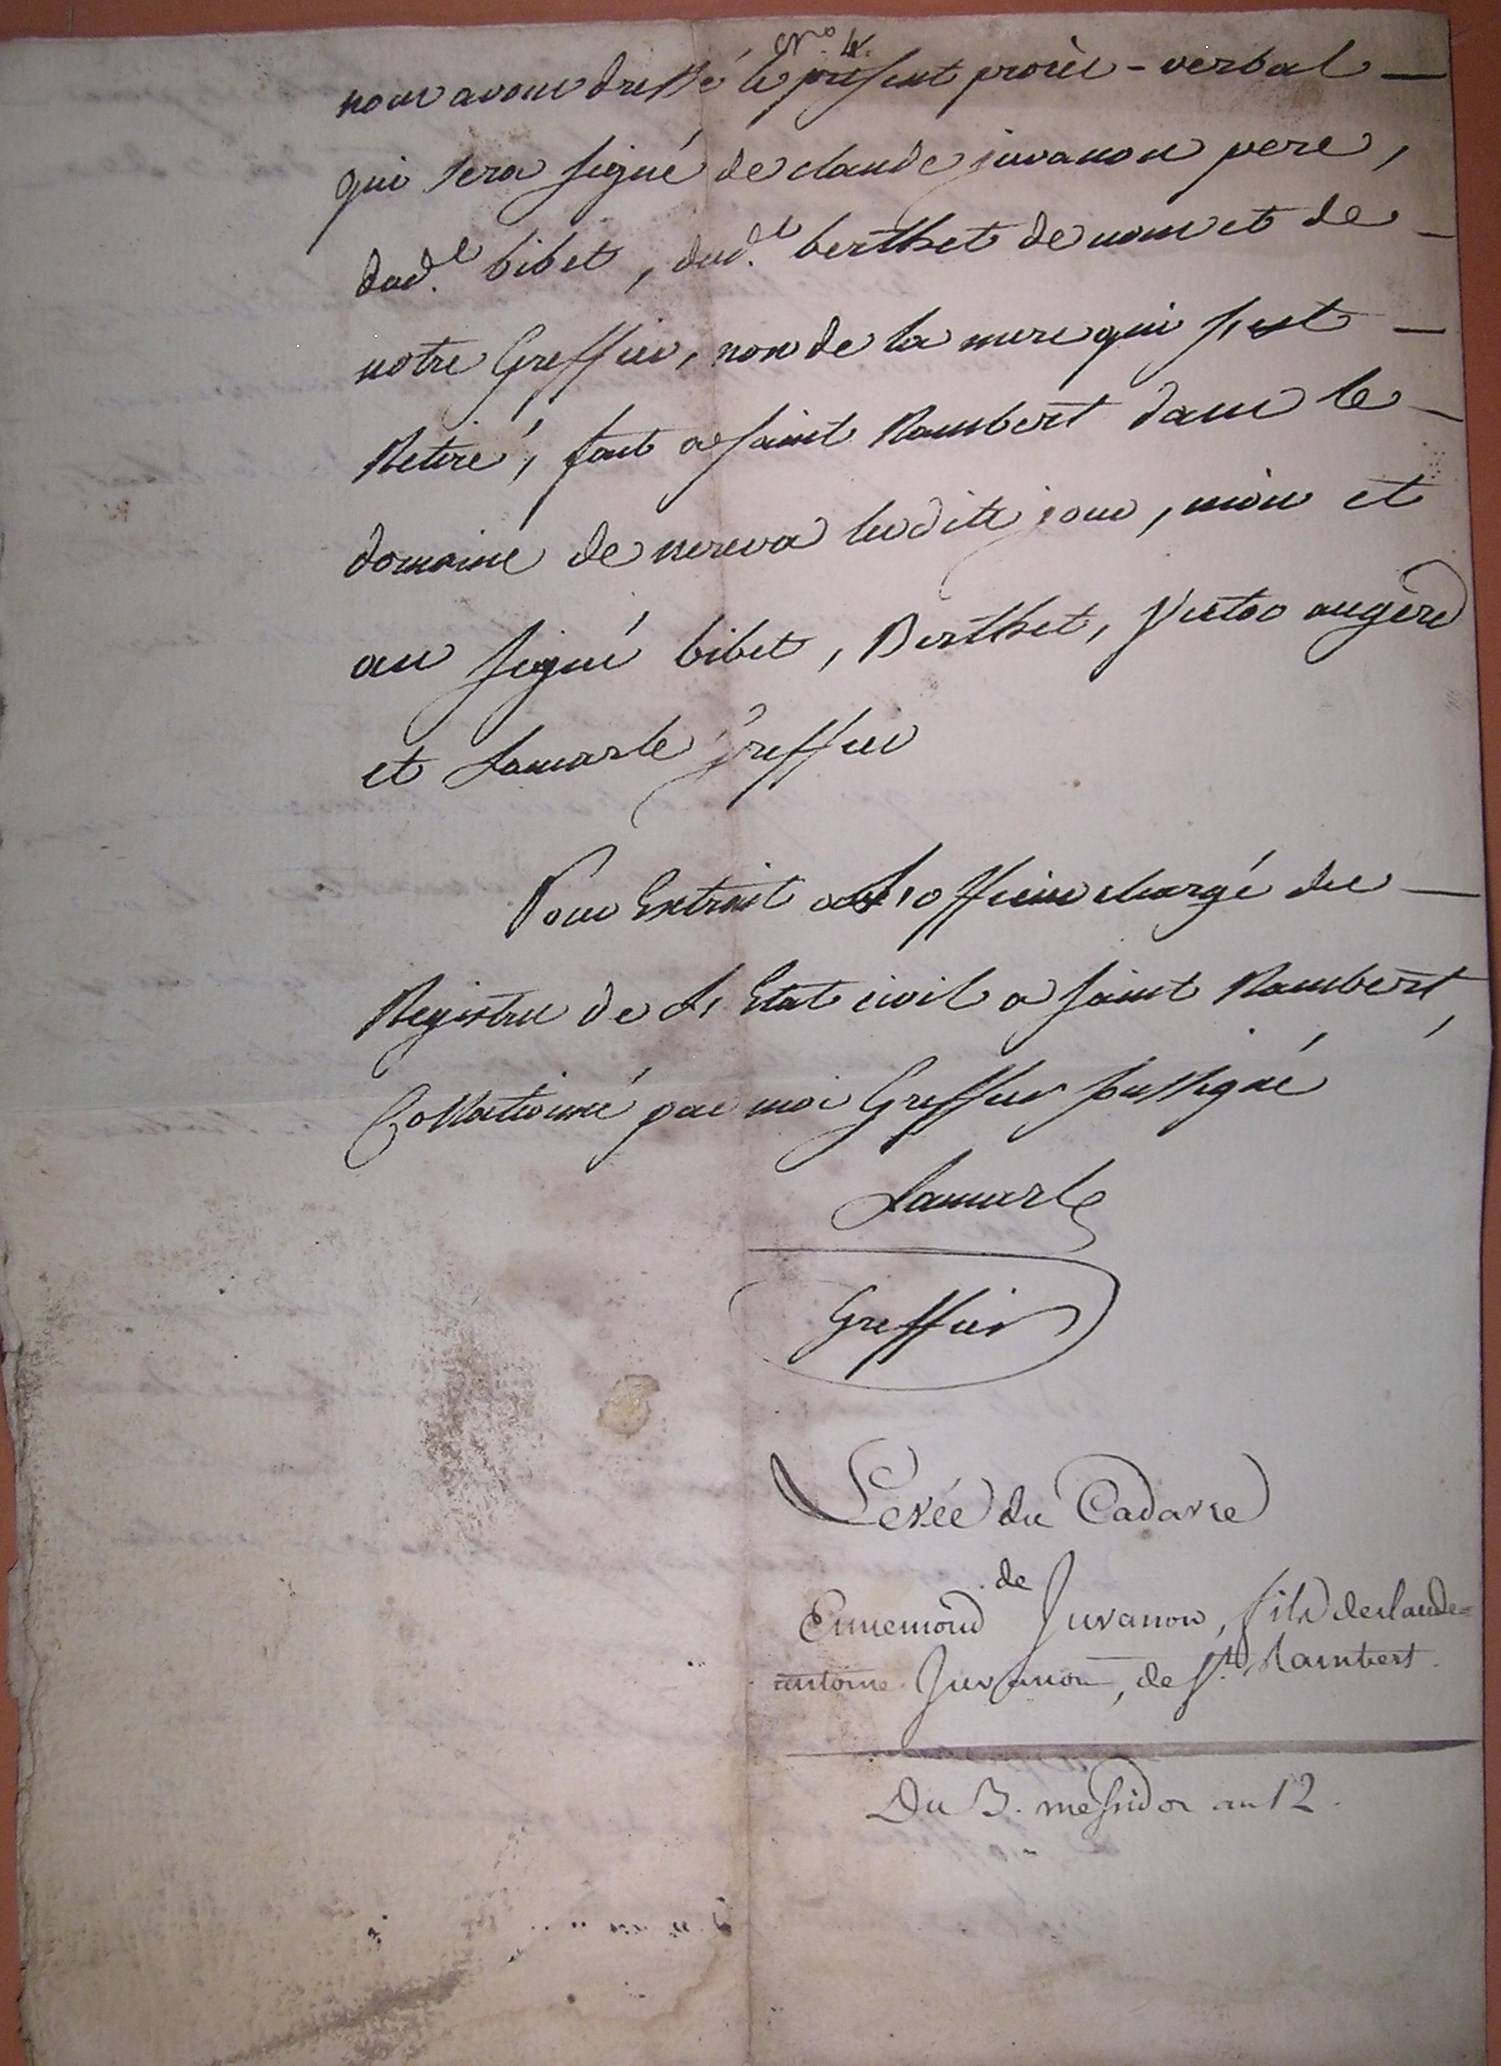 N.° 4.
nous avons dressé le present procès-verbal —
qui sera signé de claude juvanon pere,
dud.t bibet, dud.t berthet de nous et de —
notre Greffier, non de la mere qui s'est —
Retiré, fait a saint Rambert dans le —
domaine de nereva lesdits jour, mois et
an signé bibet, Berthet, augerd
et Lamarle Greffier
Pour Extrait a L'officier chargé des —
Registres de L'Etat civil a saint Rambert,
Collationné par moi Greffier soussigné
Lamarle
Greffier
Levée du Cadavre
de
Ennemond Juvanon, fils de claude=
antoine Juvanon, de St. Rambert.
Du 3. messidor an 12.